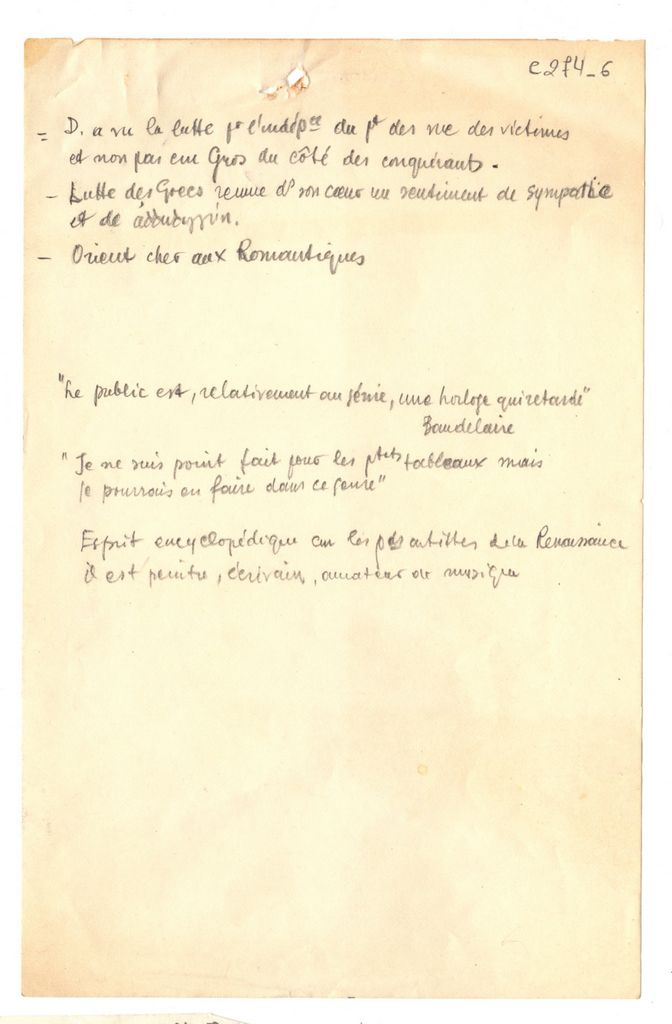 C 274-6
= D. a vu la lutte pr l'indépce du pt des vue des victimes
et non pas en Gros du côté des conquérants.
- Lutte des Grecs remue ds son cœur un sentiment de sympathie
et de
- Orient cher aux Romantiques
"Le public est, relativement au génie, une horloge qui retarde"
Baudelaire
"Je ne suis point fait pour les ptits tableaux mais
je pourrais en faire dans ce genre"
Esprit encyclopédique les artistes de la Renaissance
il est peintre, écrivain, amateur de musique